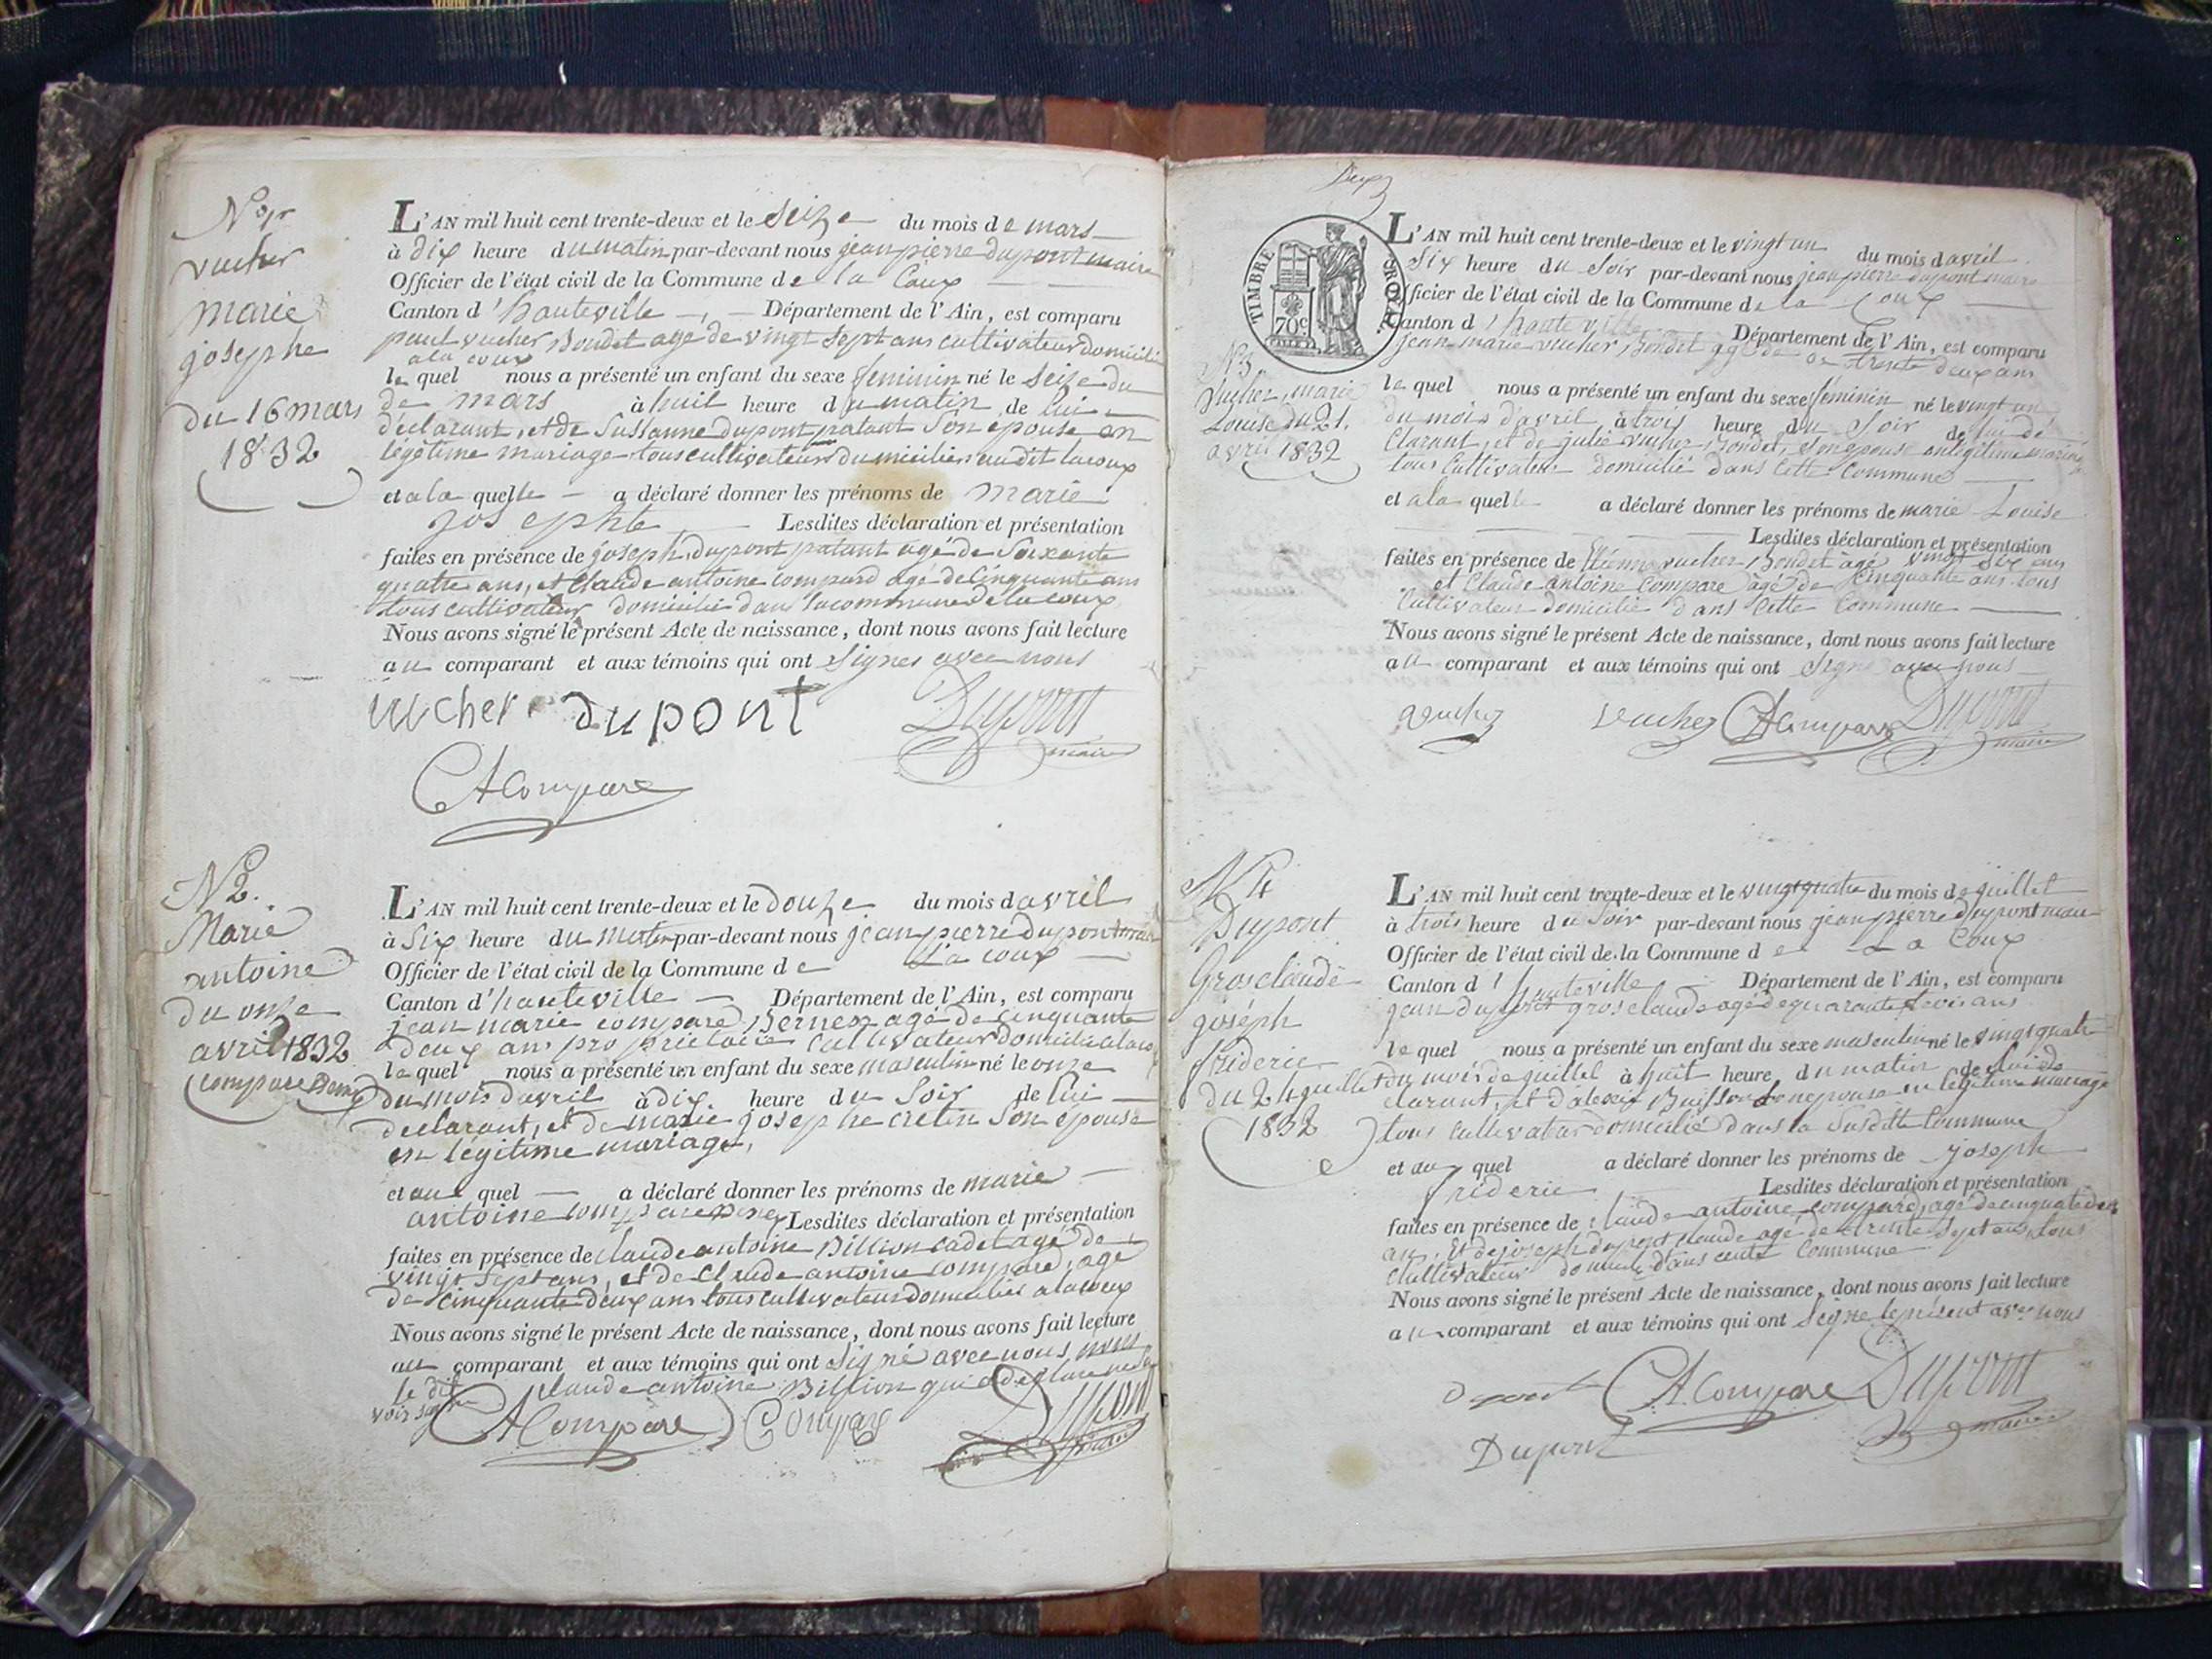 N° 1er
vucher
marie
josephe
du 16 mars
1832
L'AN mil huit cent trente-deux et le seize du mois de mars
à dix heure du matin par-devant nous jean pierre dupont maire
Officier de l'état civil de la Commune de la Coux
Canton d'hauteville Département de l'Ain, est comparu
paul vucher Bondet age de vingt sept ans cultivateur domicilié
a la coux
le quel nous a présenté un enfant du sexe feminin né le seize du
de mars à huit heure du matin de lui
déclarant, et de Sussanne dupont patant son epouse en
légétime mariage tous cultivateurs domiciliés audit lacoux
et a la quelle a déclaré donner les prénoms de marie
josephte Lesdites déclaration et présentation
faites en présence de joseph dupont patant agé de Soixante
quatre ans, et Claude antoine compard agé de Cinquante ans
tous cultivateur domicilié dans la commune de la coux
Nous avons signé le présent Acte de naissance, dont nous avons fait lecture
au comparant et aux témoins qui ont signés avec nous
vucher dupont Dupont
maire
CAComparé
N 2.
Marie
antoine
du onze
avril 1832
Compare
L'AN mil huit cent trente-deux et le douze du mois d avril
à Six heure du matin par-devant nous jean pierre dupont maire
Officier de l'état civil de la Commune de La coux
Canton d'hauteville Département de l'Ain, est comparu
jean marie compare Bernex agé de cinquante
deux ans proprietaire Cultivateur domicilie alacou
le quel nous a présenté un enfant du sexe masculin né le onze
du mois d'avril à dix heure du Soir de lui
declarant, et de marie josephe cretin Son epouse
en légitime mariage,
et au quel a déclaré donner les prénoms de marie
antoine Lesdites déclaration et présentation
faites en présence de claude antoine Billion cadet agé de
vingt Sept ans, et de Claude antoine comparé, agé
de cinquante deux ans tous cultivateur domicilies a lacoux
Nous avons signé le présent Acte de naissance, dont nous avons fait lecture
au comparant et aux témoins qui ont signé avec nous,
le dit claude antoine Billion qui a declaré ne sa
voir signer
CAComparé Comparé Dupont
maire
Dup
TIMBRE ROYAL
70c
N 3.
Vucher, marie
Louise du 21.
avril 1832
L'AN mil huit cent trente-deux et le vingt un du mois d avril
Six heure du Soir par-devant nous jean pierre dupont maire
Officier de l'état civil de la Commune de la Coux
Canton d'hauteville Département de l'Ain, est comparu
jean marie vucher Bondet agé de trente deux ans
le quel nous a présenté un enfant du sexe féminin né le vingt un
du mois d'avril à trois heure du Soir de lui dé
clarant, et de julie vucher Bondet, Son epouse en légitime mariage
tous Cultivateur domicilié dans Cette Commune
et a la quelle a déclaré donner les prénoms de marie Louise
Lesdites déclaration et présentation
faites en présence de Etienne vucher Bondet âgé vingt Six ans
et Claude antoine Compare âgé de Cinquante ans tous
Cultivateur domicilié dans Cette Commune
Nous avons signé le présent Acte de naissance, dont nous avons fait lecture
au comparant et aux témoins qui ont Signé avec nous
vucher CAComparé Dupont
maire
N 4
Dupont
Grosclaude
joséph
frideric
du 24 quillet
1832
L'AN mil huit cent trente-deux et le vingt quatre du mois de quillet
à trois heure du Soir par-devant nous jean pierre dupont maire
Officier de l'état civil de la Commune de La Coux
Canton d'hauteville Département de l'Ain, est comparu
jean dupont grosclaude agé de quarante trois ans
le quel nous a présenté un enfant du sexe masculin né le vingt quatre
du mois de quillet à huit heure du matin de lui de
clarant, et d'alexix Buisson Son epouse en légitime mariage
tous cultivateur domicilié dans la Susditte Commune
et au quel a déclaré donner les prénoms de joseph
frideric Lesdites déclaration et présentation
faites en présence de claude antoine comparé, agé de cinquante deux
an. Et de joseph dupont claude agé de trente Sept ans, tous
Cultivateur domicilié dans cette Commune
Nous avons signé le présent Acte de naissance, dont nous avons fait lecture
au comparant et aux témoins qui ont Signe le présent avec nous
Dupont CAComparé Dupont
maire
Dupont